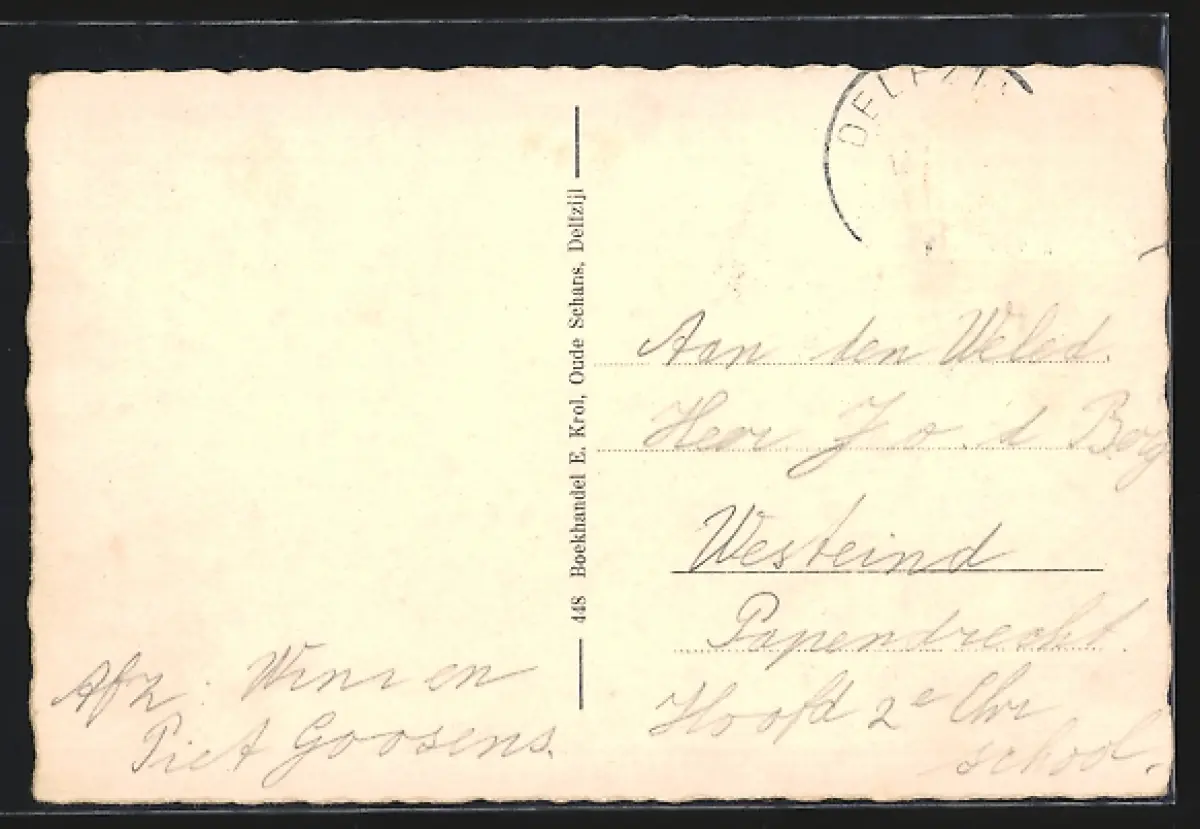 DELFZIJL
448 Boekhandel E. Krol, Oude Schans, Delfzijl
Aan den Weled.
Heer J v. d Berg
Westeind
Papendrecht.
Hoofd 2e Chr
school.
Afz: Wim en
Piet Goosens.